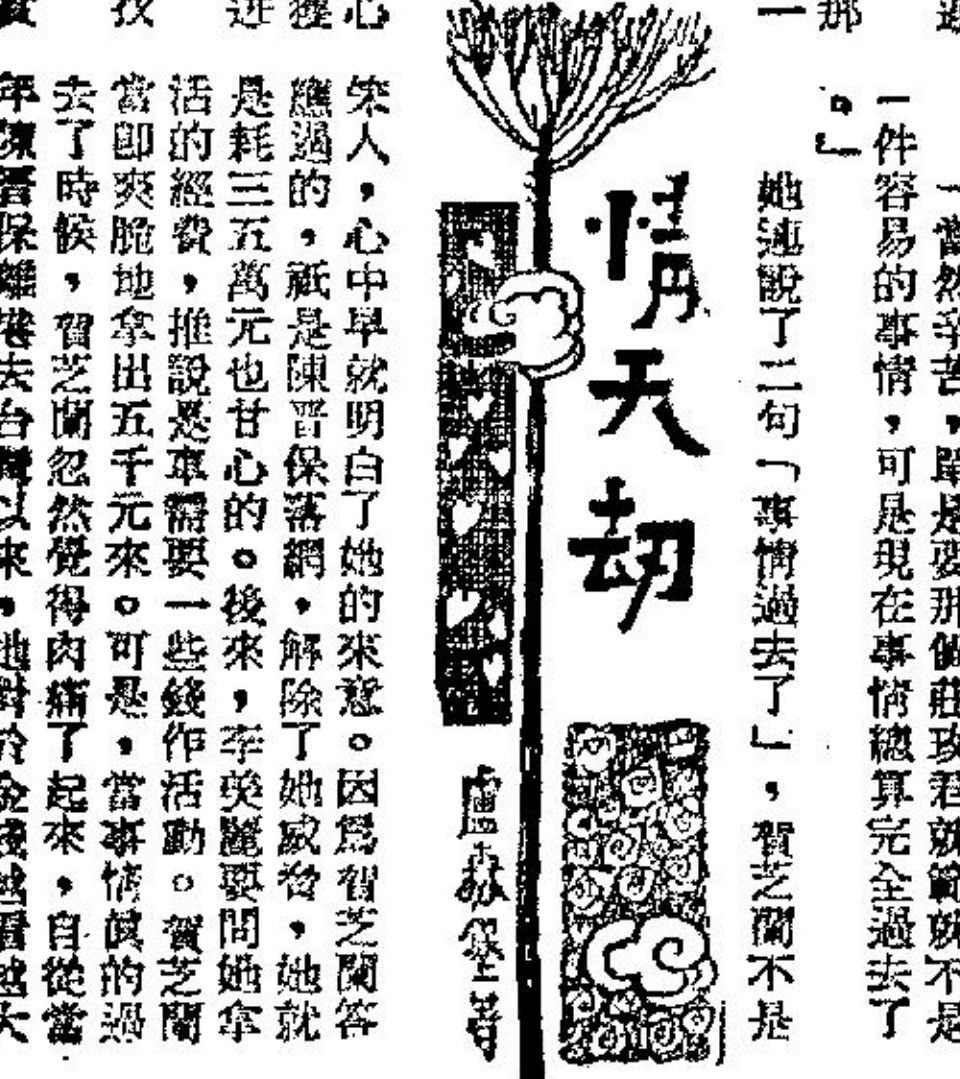 一當然辛苦，單是要那個莊玫君就範就不是
一件容易的事情，可是現在事情總算完全過去了
。」
她連說了二句「事情過去了」，賀芝蘭不是
情天劫
盧森堡著
人，心中早就明白了她的來意。因爲賀芝蘭答
應過的，祇是陳晋保落網，解除了她威脅，她就
是耗三五萬元也甘心的。後來，李英麗要問她拿
活的經費，推說是車需要一些錢作活動。賀芝蘭
當即爽脆地拿出五千元來。可是，當事情眞的過
去了時候，賀芝蘭忽然覺得肉痛了起來，自從當
年陳晋保離港去台灣以來，她對於金錢越看越大